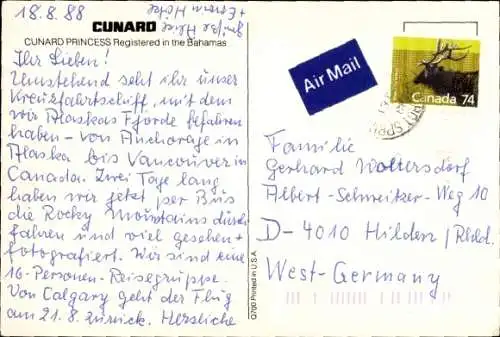 18.8.88
CUNARD
CUNARD PRINCESS Registered in the Bahamas
Ihr Lieben!
Umstehend seht ihr unser
Kreuzfahrtschiff, mit dem
wir Alaskas Fjorde gefahren
haben - von Anchorage in
Alaska bis Vancouver in
Canada. Zwei Tage lang
haben wir jetzt per Bus
die Rocky Mountains durch
fahren und viel gesehen +
fotografiert. Wir sind eine
16-Personen-Reisegruppe.
Von Calgary geht der Flug
am 21.8. zurück. Herzliche
Grüße
Q700 Printed in U.S.A.
Air Mail
Canada 74
Familie
Gerhard Woltersdorf
Albert-Schweitzer-Weg 10
D-4010 Hilden/Rhld.
West-Germany